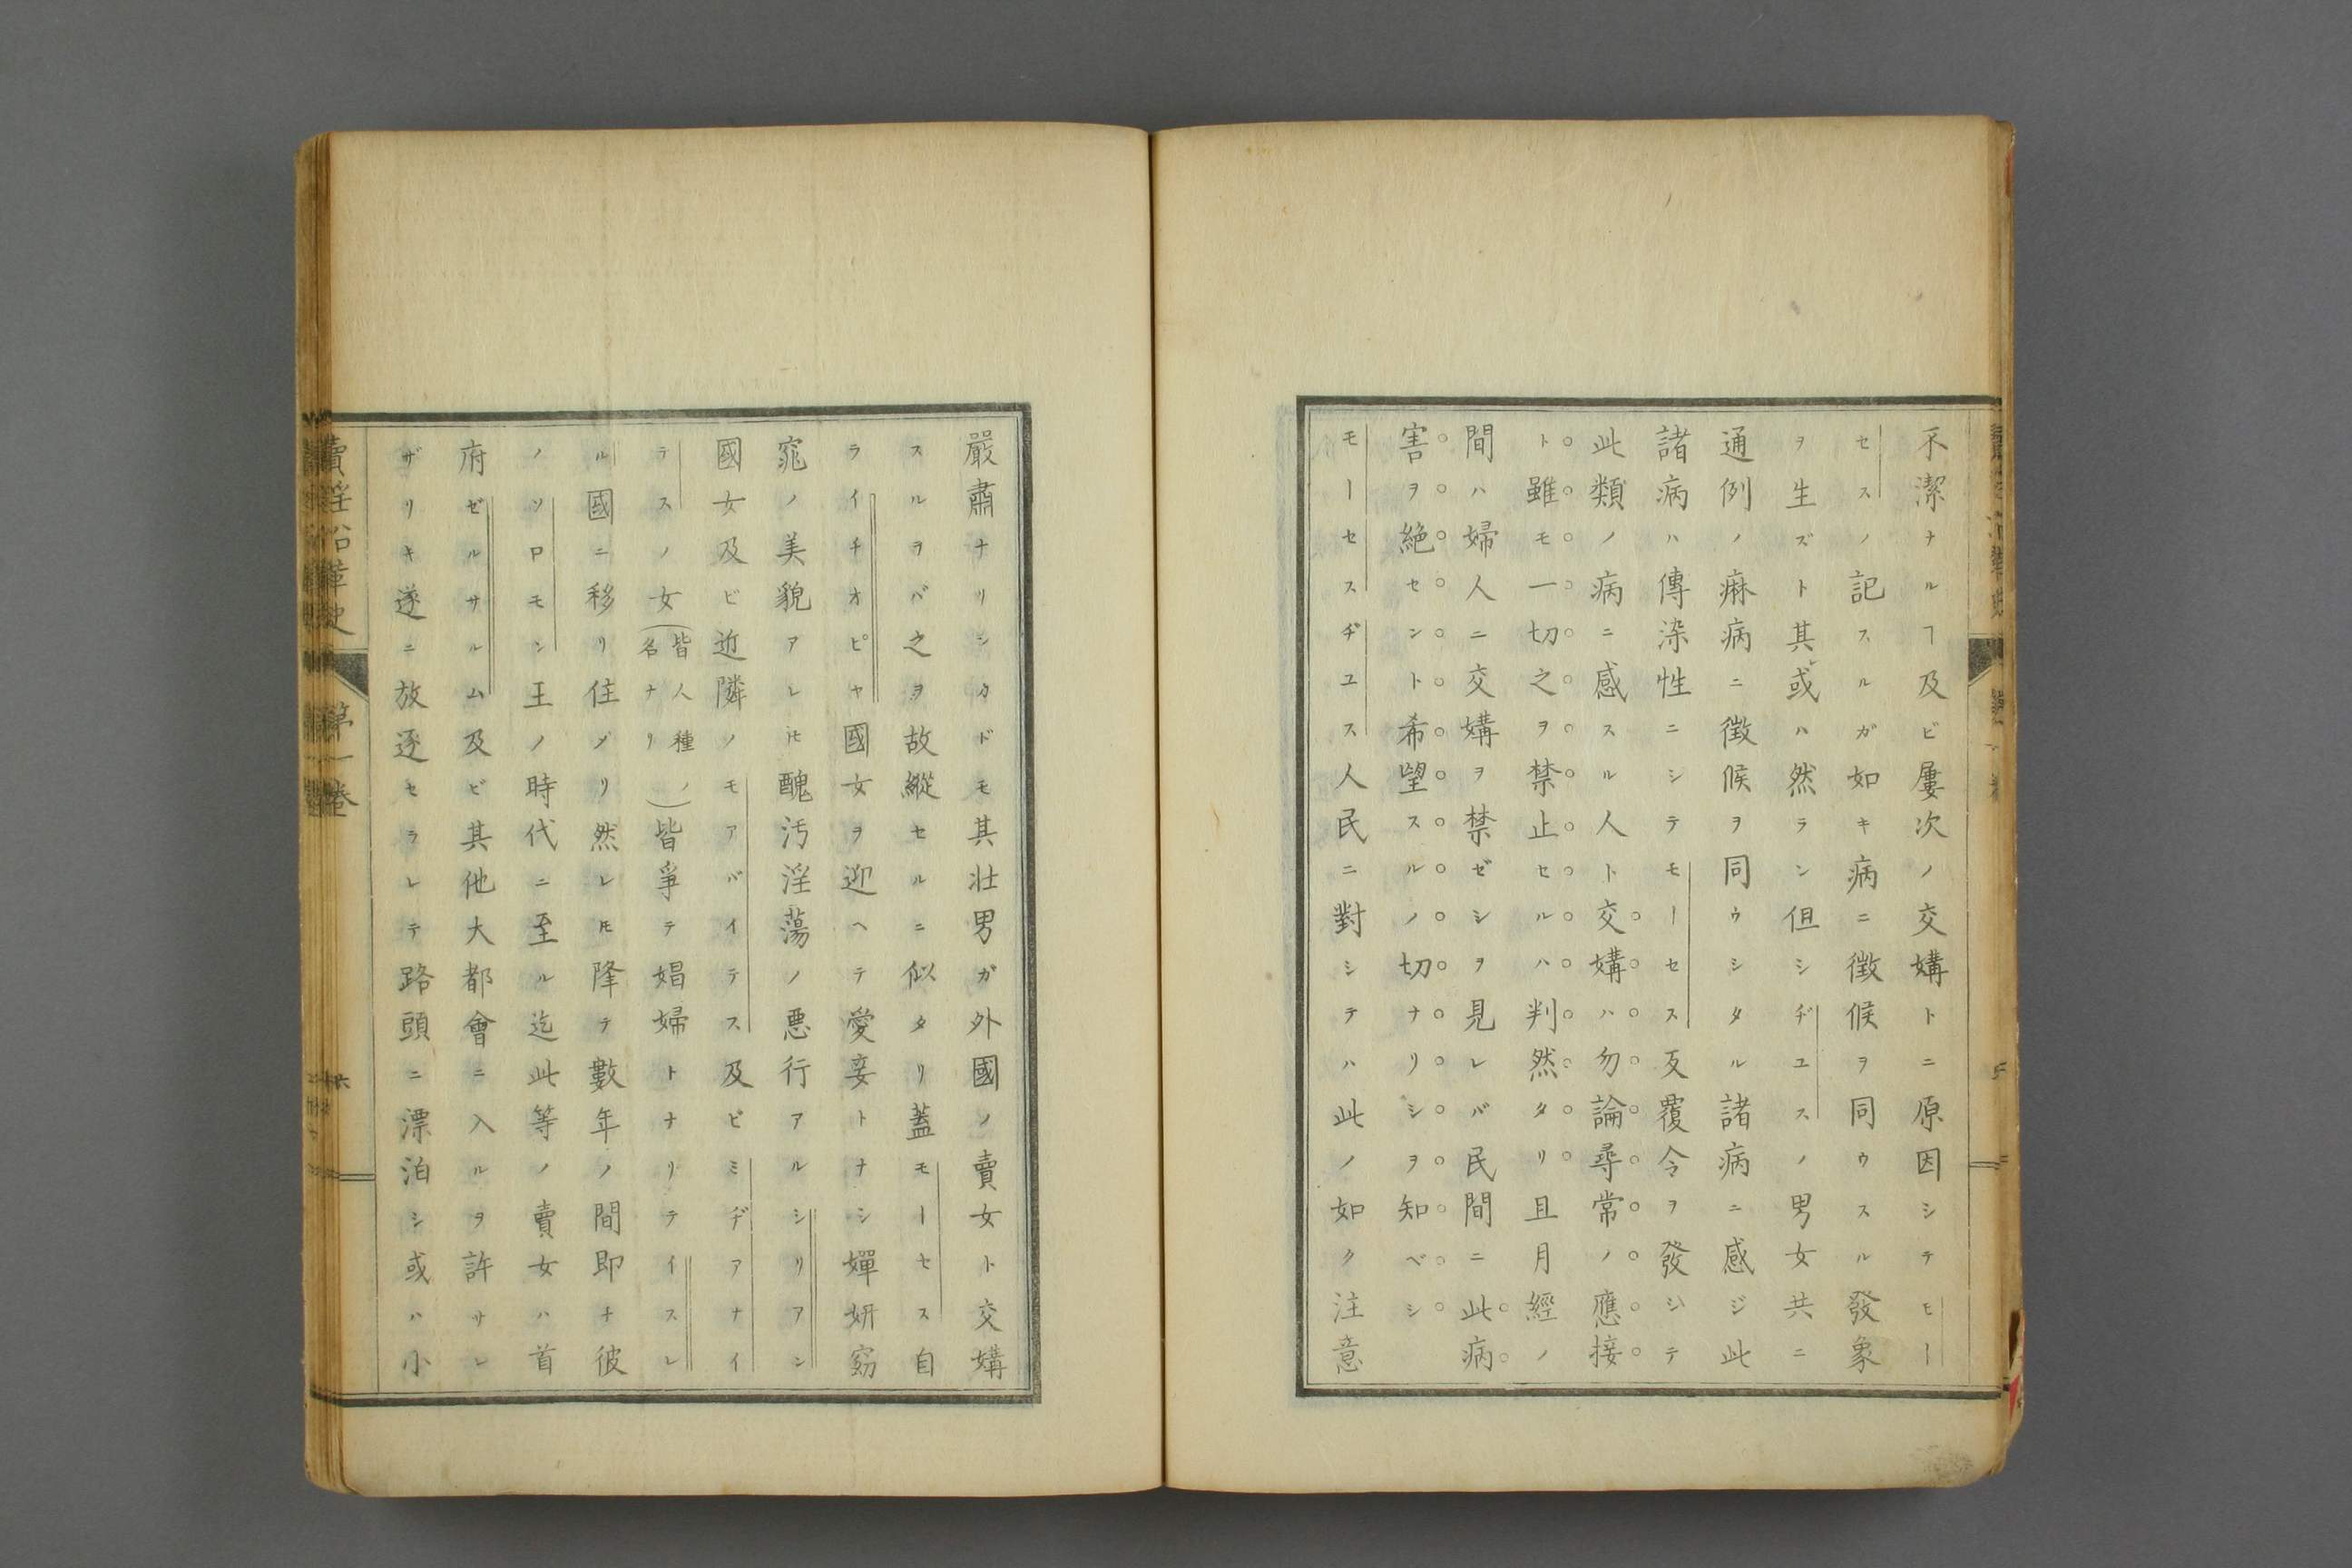 不潔ナルヿ及ビ屢次ノ交媾トニ原因シテモー
セスノ記スルガ如キ病ニ徴候ヲ同ウスル發象
ヲ生ズト其レ或ハ然ラン但シヂユスノ男女共ニ
通例ノ痳病ニ徴候ヲ同ウシタル諸病ニ感ジ此
諸病ハ傳染性ニシテモーセス反覆令ヲ發シテ
此類ノ病ニ感スル人ト交媾ハ勿論尋常ノ應接
ト雖モ一切之ヲ禁止セルハ判然タリ且月經ノ
間ハ婦人ニ交媾ヲ禁ゼシヲ見レバ民間ニ此病
害ヲ絶セント希望スルノ切ナリシヲ知ベシ
モーセスヂユス人民ニ對シテハ此ノ如ク注意
嚴肅ナリシカドモ其壮男ガ外國ノ賣女ト交媾
スルヲバ之ヲ故縱セルニ似タリ蓋モーセス自
ライチオピヤ國女ヲ迎ヘテ愛妾トナシ嬋妍窈
窕ノ美貌アレ𪜈醜汚淫蕩ノ悪行アルシリアン
國女及ビ近隣ノモアバイテス及ビミヂアナイ
テスノ女(皆人種ノ名ナリ)皆爭テ娼婦トナリテイスレ
ル國ニ移リ住メリ然レ𪜈降テ數年ノ間即チ彼
ノソロモン王ノ時代ニ至ル迄此等ノ賣女ハ首
府ゼルサルム及ビ其他大都會ニ入ルヲ許サレ
ザリキ遂ニ放逐セラレテ路頭ニ漂泊シ或ハ小
賣淫沿革史 第一巻 六